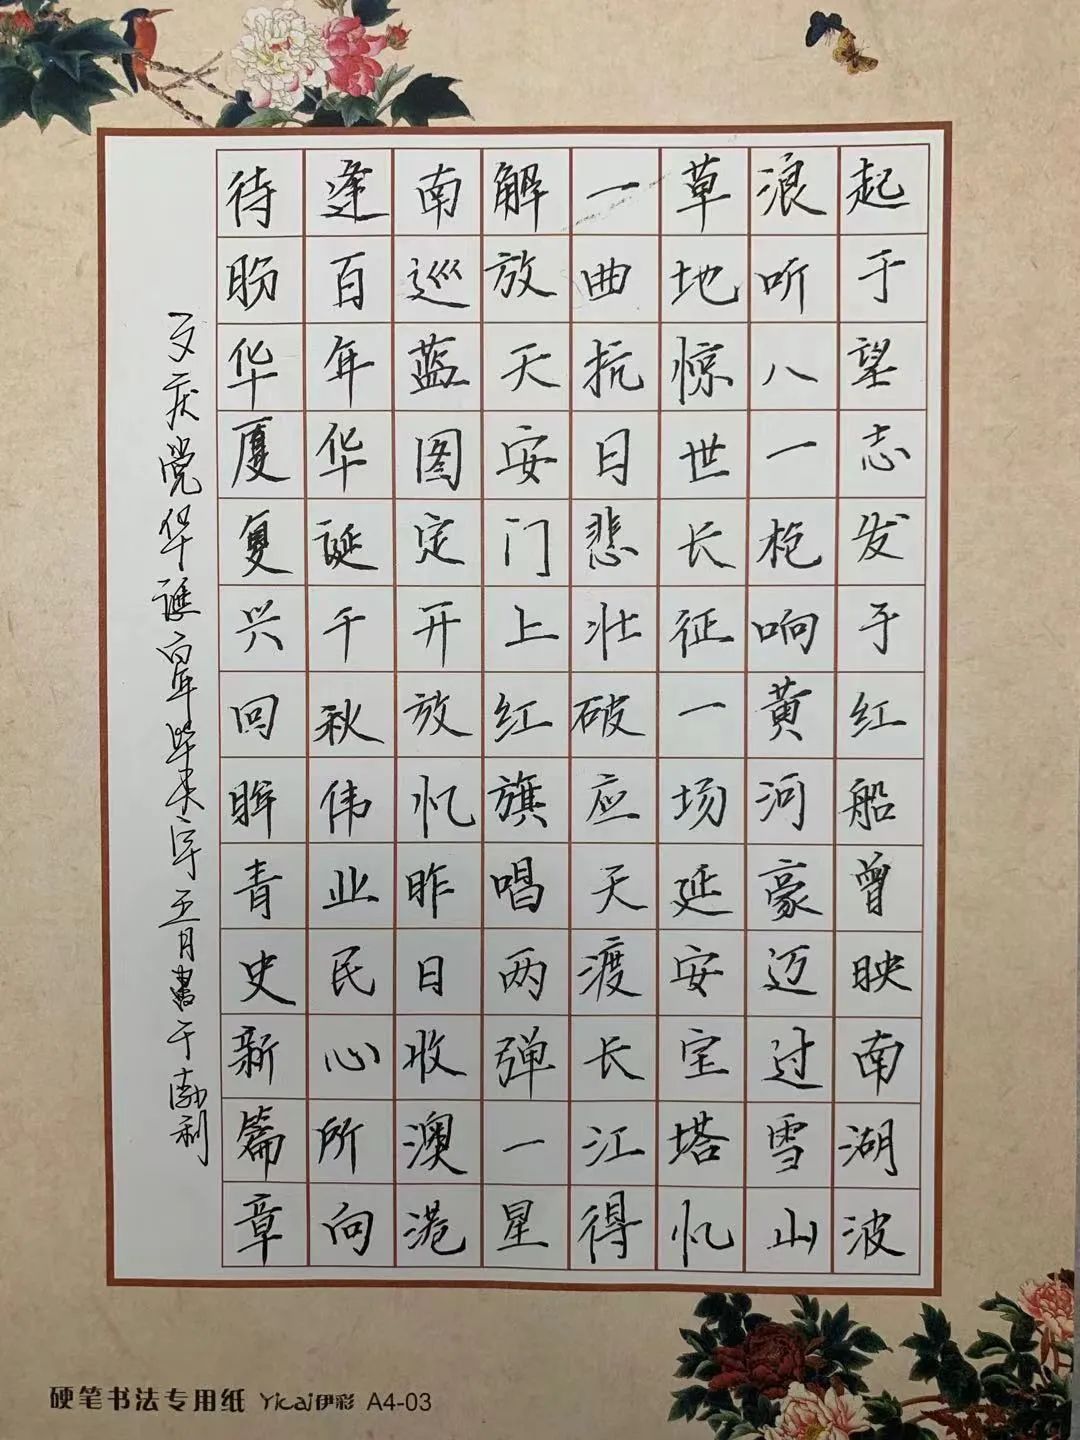 起于望志发于红船曾映南湖波
浪听八一枪响黄河豪迈过雪山
草地惊世长征一场延安宝塔忆
一曲抗日悲壮破应天渡长江得
解放天安门上红旗唱两弹一星
南巡蓝图定开放忆昨日收澳港
逢百年华诞千秋伟业民心所向
待盼华厦复兴回眸青史新篇章
庆党华诞百年 五月书于勃利
硬笔书法专用纸 Yicai伊彩 A4-03